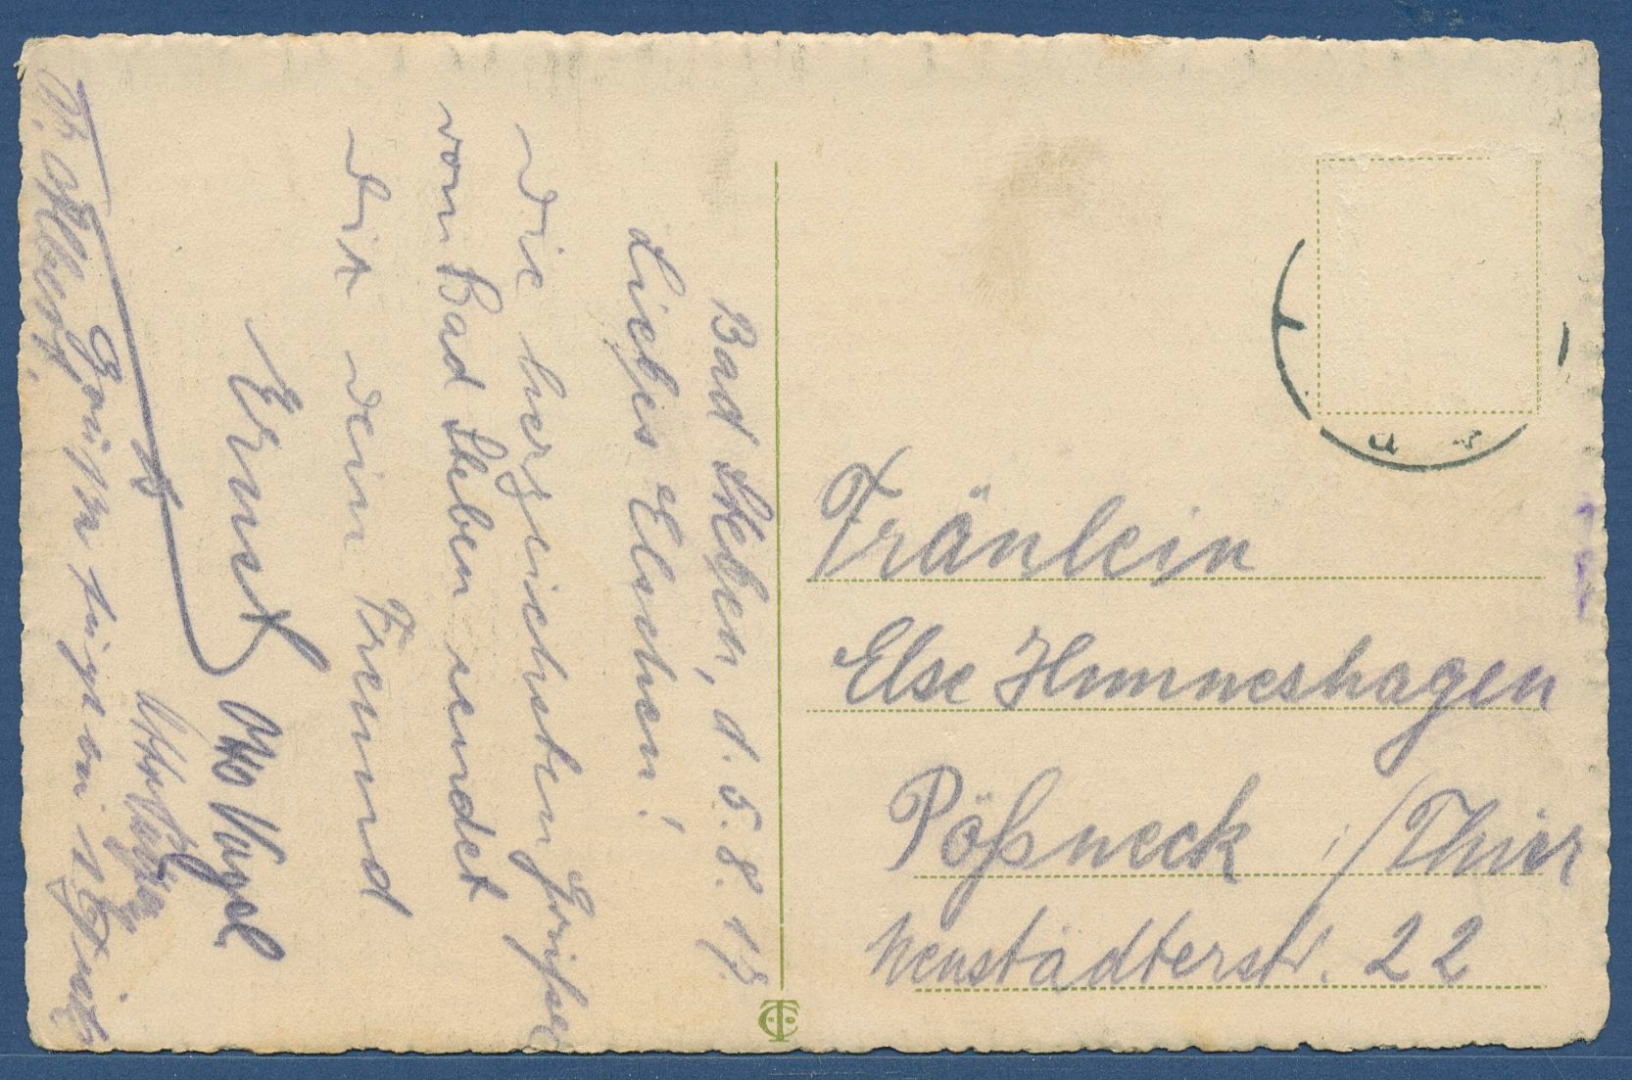 Bad Steben, d. 5. 8. 17.
Liebes Elschen!
Die herzlichsten Grüße
von Bad Steben sendet
dir dein Freund
Ernst
Otto Vogel
Fräulein
Else Hunneshagen
Pößneck i/Thür
Neustädterstr. 22